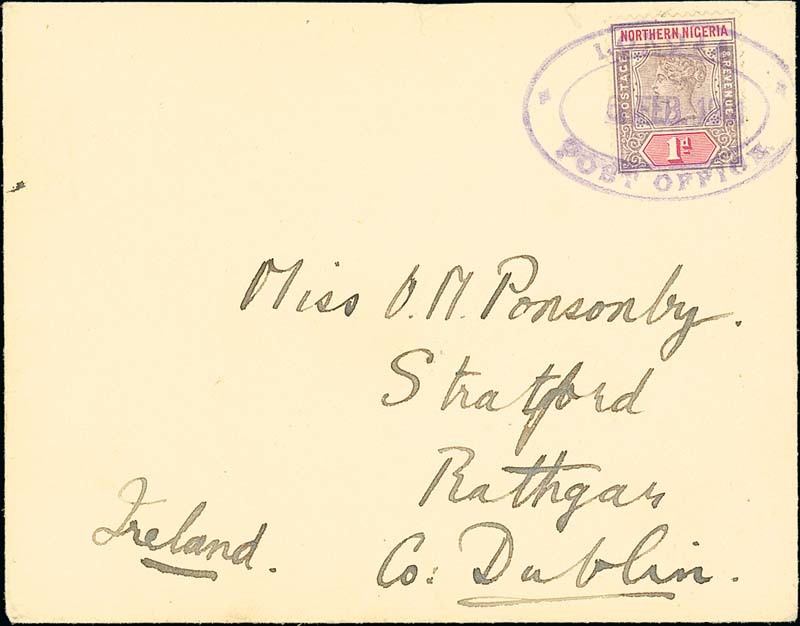 NORTHERN NIGERIA
POSTAGE & REVENUE
1d
FEB
POST OFFICE.
Miss O. M. Ponsonby.
Stratford
Rathgar
Co: Dublin.
Ireland.